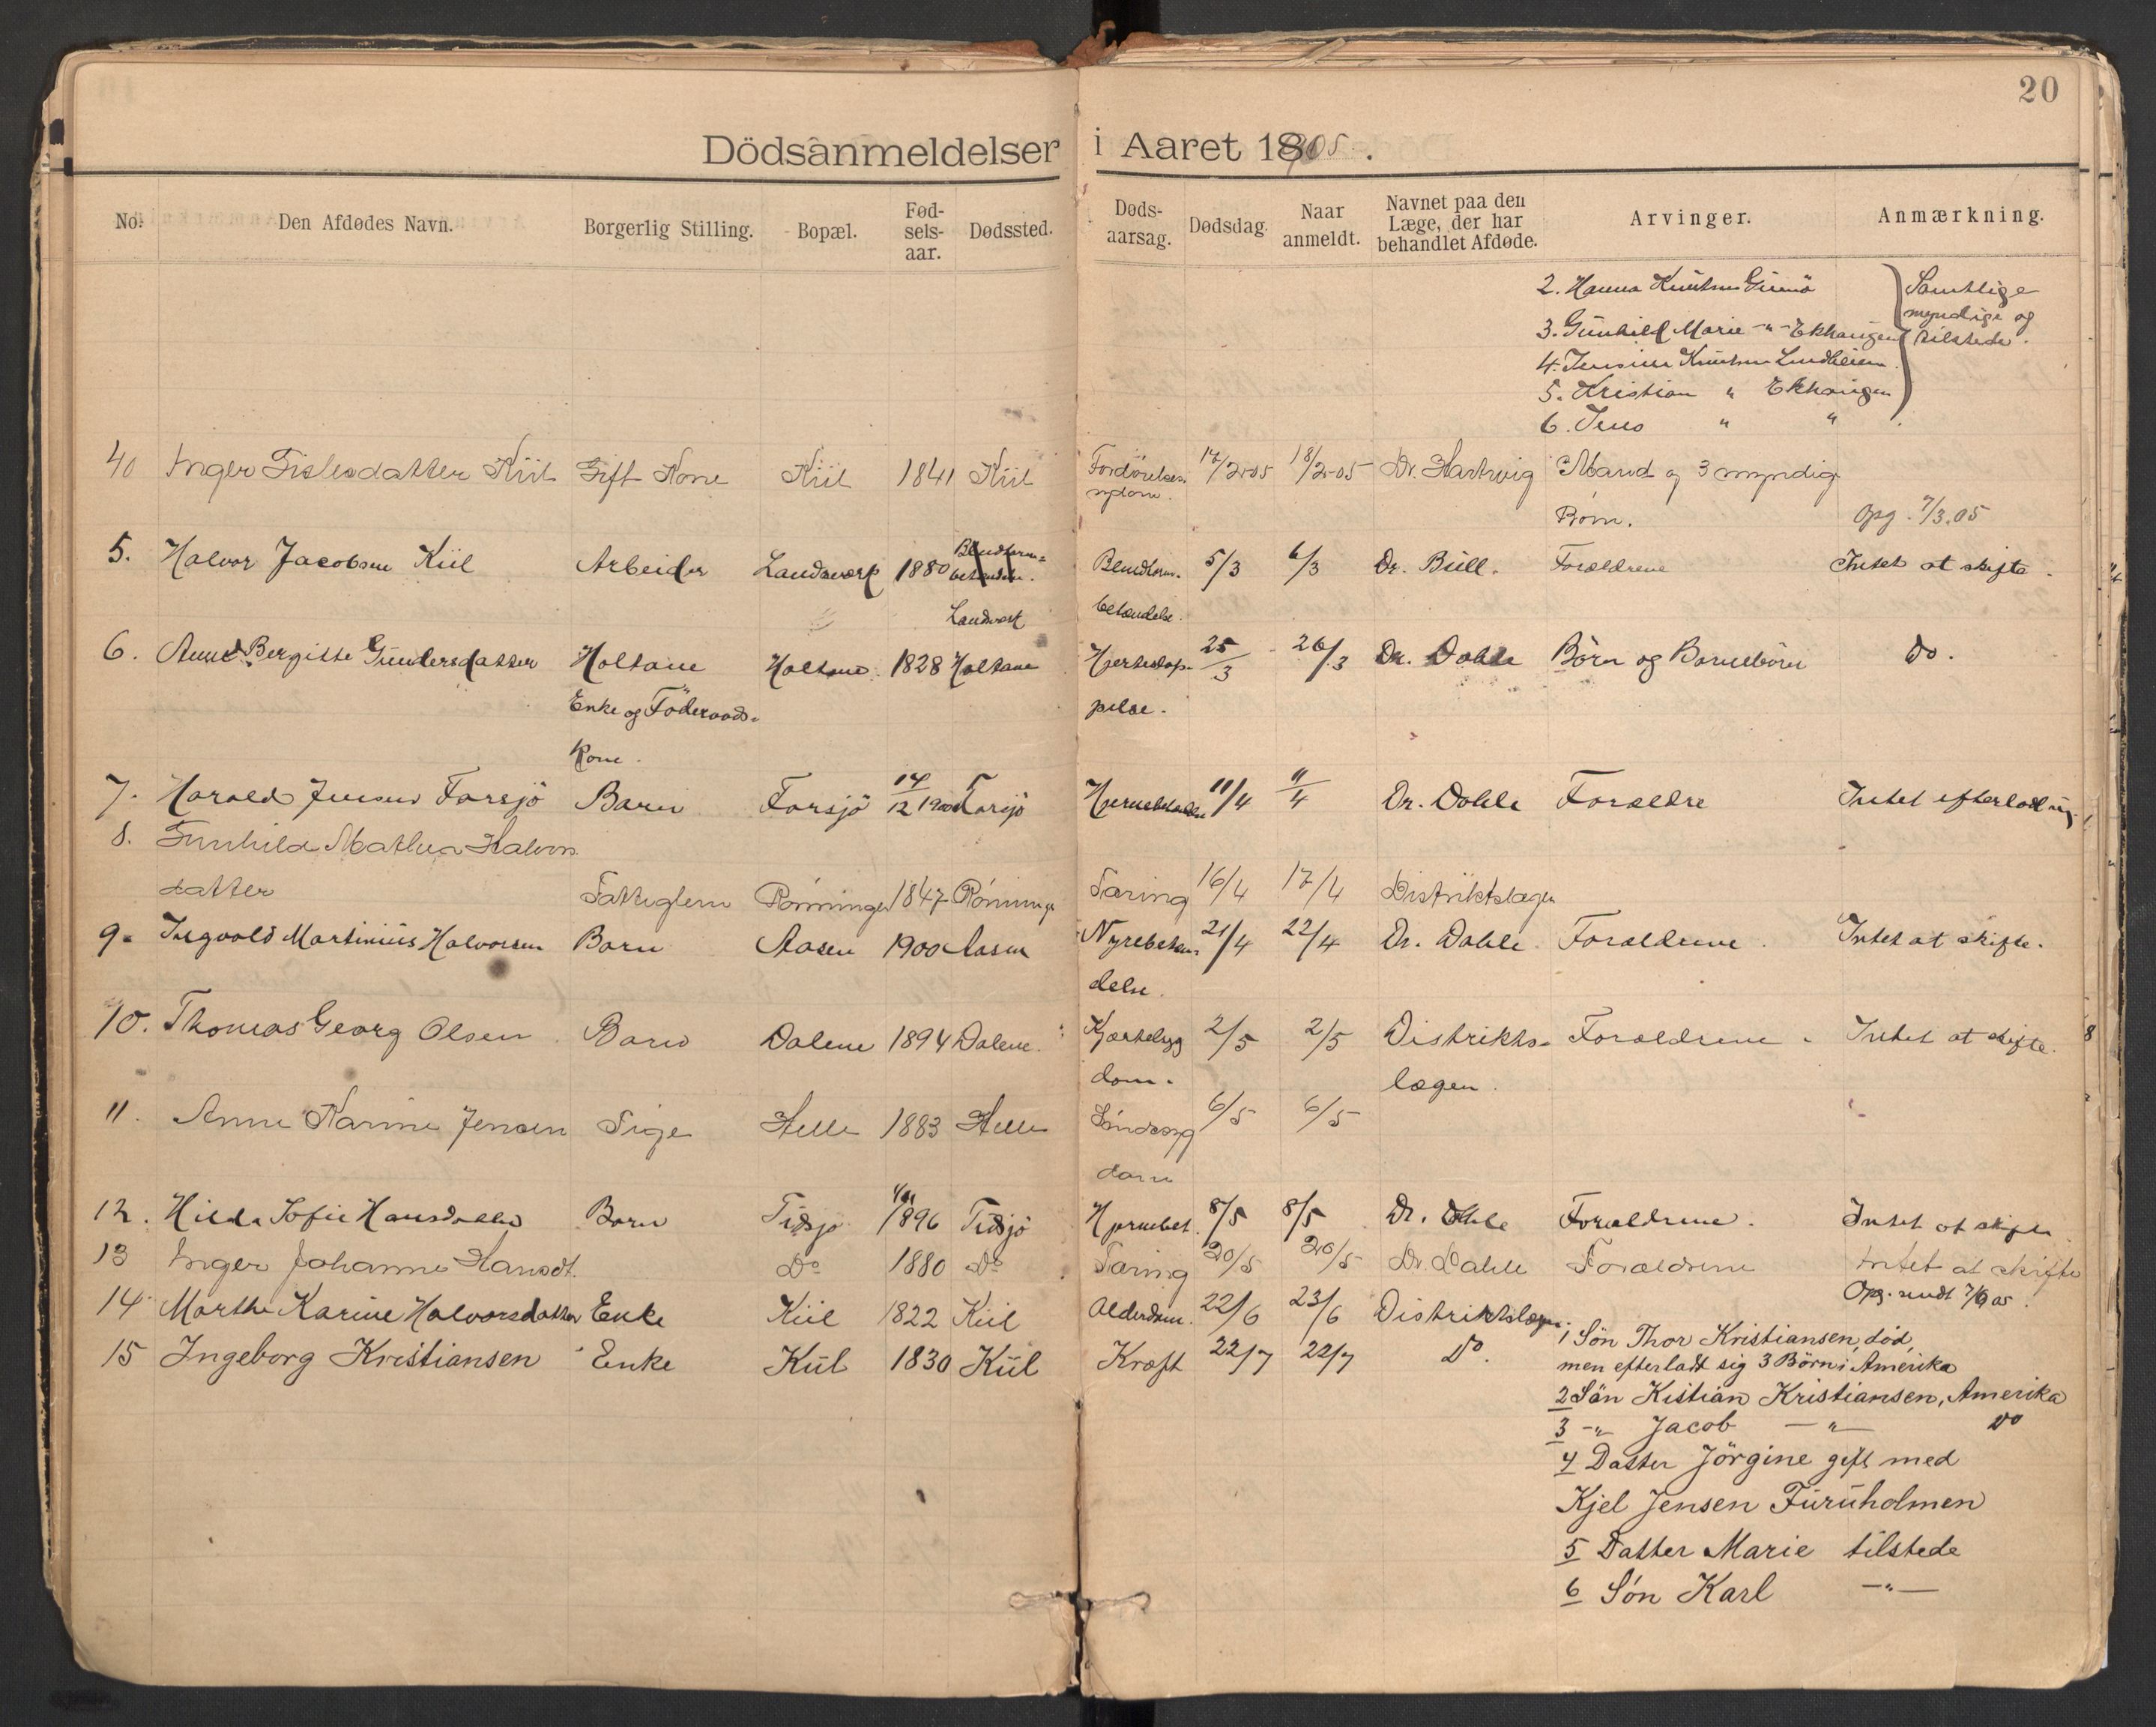 20
Dödsanmeldelser i Aaret 1905.
No. Den Afdødes Navn. Borgerlig Stilling. Bopæl. Fødselsaar. Dødssted. Dødsaarsag. Dødsdag. Naar anmeldt. Navnet paa den Læge, der har behandlet Afdøde. Arvinger. Anmærkning.
2. Hanna Knutsen Gumö
3. Gunhild Marie -"- Ekhaugen
4. Knutsen Lundheim
5. Kristian " Ekhaugen
6. Jens " "
Samtlige
myndige og
tilstede.
40 Inger Gislesdatter Kiil Gift Kone Kiil 1841 Kiil 17/2-05 18/2-05 Dr. Hartvig Mand og 3 myndig
Børn. Opg. 7/3.05
5. Halvor Jacobsen Kiil Arbeider Landsverk 1880 Blindtarm- 5/3 6/3 Dr. Bull. Forældrene Intet at skifte.
Landsverk betændelse.
6. Anne Bergitte Gundersdatter Holtane Holtane 1828 Holtane Hjertelap- 25/3 26/3 Dr. Dahle Børn og Barnebørn Do.
Enke og Föderaads- pelse.
Kone.
7. Harald Jensen Farsjö Barn Farsjö 14/12 1900 Farsjö 11/4 11/4 Dr. Dahle Forældre Intet efterladt sig.
8. Gunhild Mathea Halvors
datter Fattiglem Rønningen 1847 Rønningen Tæring 16/4 17/4 Distriktslægen
9. Ingvald Martinius Halvorsen Barn Aasen 1900 Aasen Nyrebetæn- 21/4 22/4 Dr. Dahle. Forældrene. Intet at skifte.
delse.
10. Thomas Georg Olsen Barn Dalene 1894 Dalene. Kjertelsyg 2/5 2/5 Distrikts- Forældrene. Intet at skifte.
dom. lægen.
11. Anne Karine Jensen Pige Helle 1883 Helle 6/5 6/5
dom
12. Hilda Sofie Hansdatter Barn Tisjö 1896 Tisjö Hjernebet. 8/5 8/5 Dr. Dahle Forældrene. Intet at skifte.
13 Inger Johanne Hansdt. Do 1880 Do Tæring 20/5 20/5 Dr. Dahle Forældrene Intet at skifte
14 Marthe Karine Halvorsdatter Enke Kiil 1822 Kiil Alderdom. 22/6 23/6 Distriktslægen. Opg. sendt 7/9 05.
15 Ingeborg Kristiansen Enke Kiil 1830 Kiil Kræft 22/7 22/7 Do.
1 Sön Thor Kristiansen, död,
men efterladt sig 3 Börn i Amerika
2 Sön Kistian Kristiansen, Amerika
3 -"- Jacob -"- Do
4 Datter Jörgine gift med
Kjel Jensen Furuholmen
5 Datter Marie tilstede
6 Sön Karl -"-